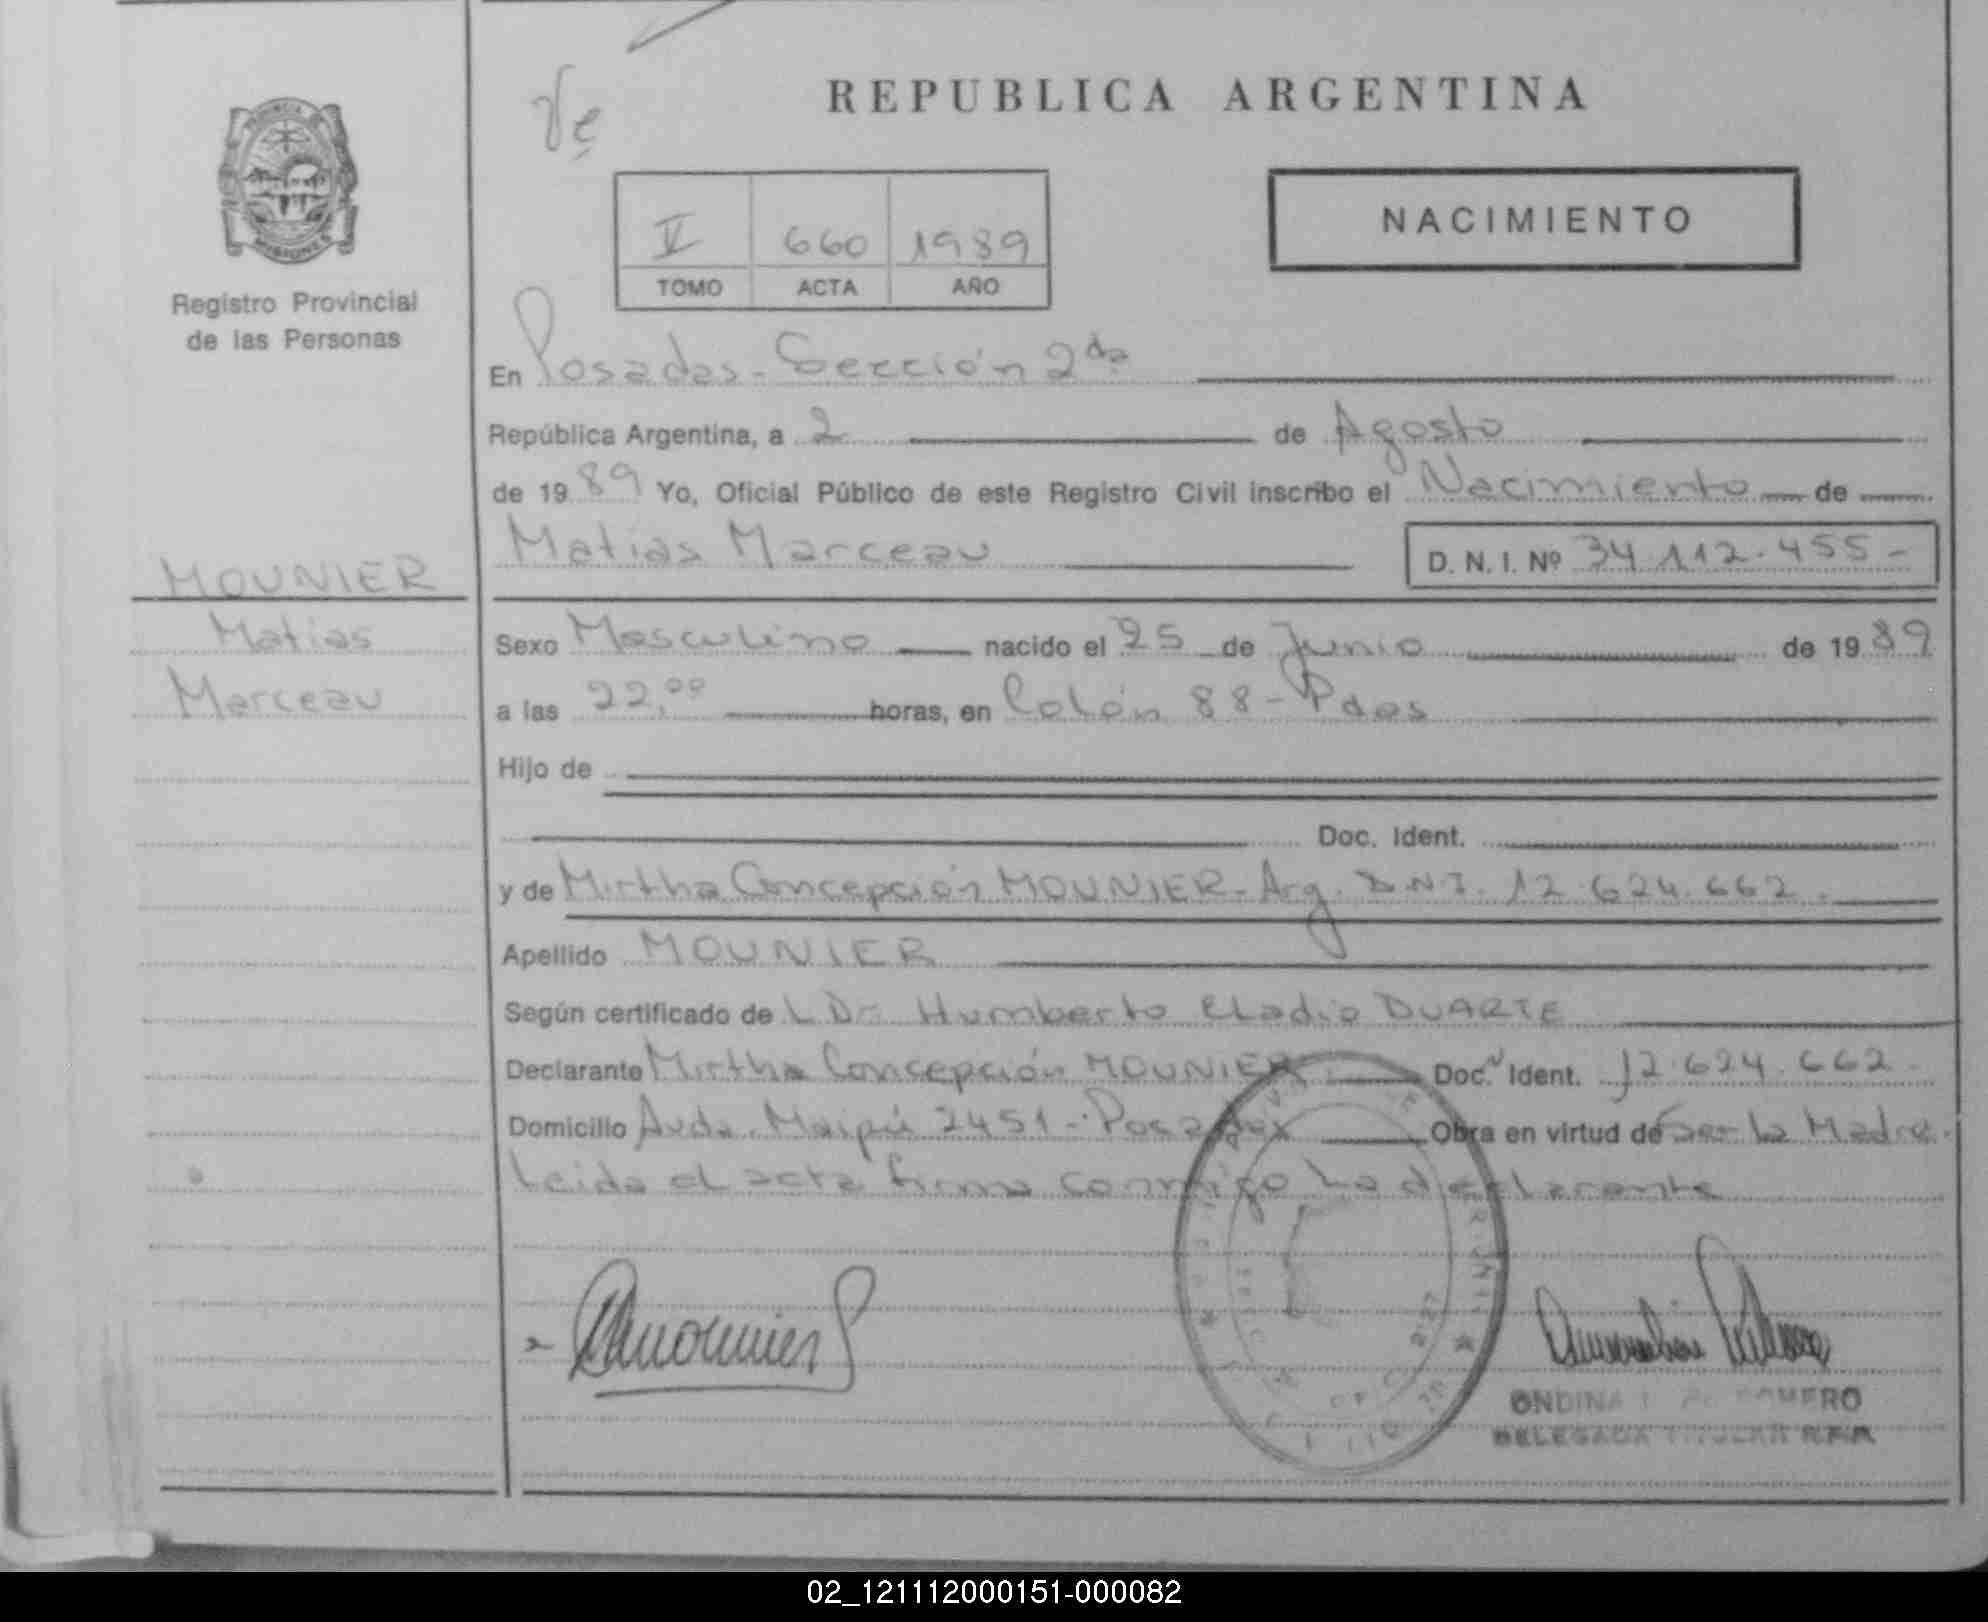 REPUBLICA ARGENTINA
NACIMIENTO
V 660 1989
TOMO ACTA AÑO
Registro Provincial
de las Personas
MOUNIER
Matias
Marceau
En Posadas - Sección 2da
República Argentina, a 2 de Agosto
de 19 89 Yo, Oficial Público de este Registro Civil inscribo el Nacimiento de
Matias Marceau D. N. I. Nº 34.112.455-
Sexo Masculino nacido el 25 de Junio de 19 89
a las 22,00 horas, en Colón 88 - Pdas
Hijo de
Doc. Ident.
y de Mirtha Concepción MOUNIER - Arg. D.N.I. 12.624.662.
Apellido MOUNIER
Según certificado de L Dr Humberto Eladio DUARTE
Declarante Mirtha Concepción MOUNIER Doc. Ident. 12.624.662-
Domicilio Avda. Maipú 2451 - Posadas Obra en virtud de Ser la Madre.
Leida el acta firma conmigo la declarante
ONDINA ROMERO
DELEGADA TITULAR R.P.P.
02_121112000151-000082